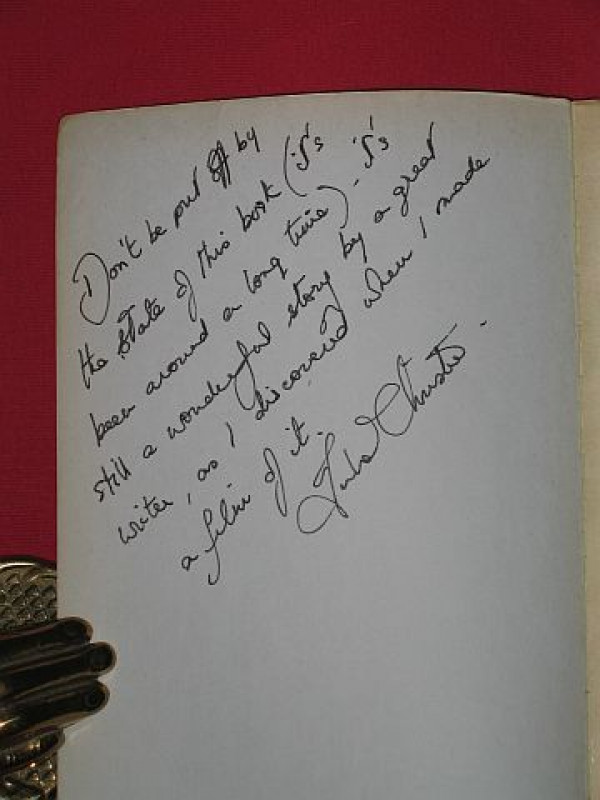 Don't be put off by
the state of this book (it's
been around a long time) - it's
still a wonderful story by a great
writer, as I discovered when I made
a film of it.
Julie Christie.